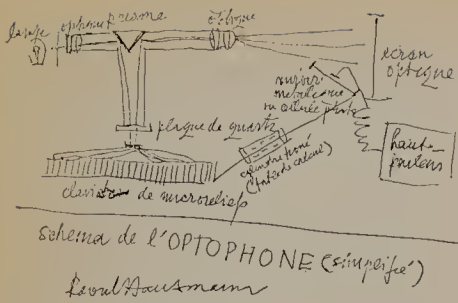 lampe
optique
prisme
optique
écran
optique
miroir
ou cellule photo
plaque de quartz
cylindre troué
haut-
parleurs
clavier de microreliefs
schema de l'OPTOPHONE (simplifié)
Raoul Hausmann